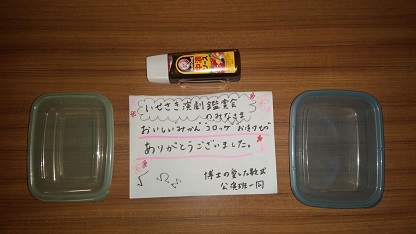 中濃
ソース
いせさき演劇鑑賞会
のみなさま
おいしいみかん コロッケ お漬け物
ありがとうございました。
博士の愛した数式
公演班一同